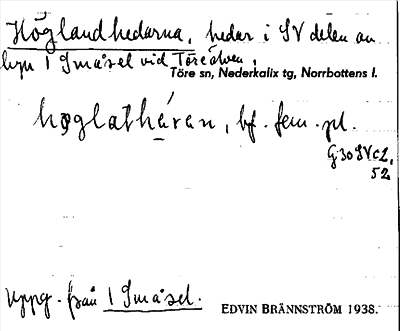 Höglandhedarna, hedar i SV delen av
byn 1 Småsel vid Töreälven.
Töre sn, Nederkalix tg, Norrbottens l.
bf. fem. pl.
G30SVc2,
52
Uppg. från 1 Småsel.
EDVIN BRÄNNSTRÖM 1938.